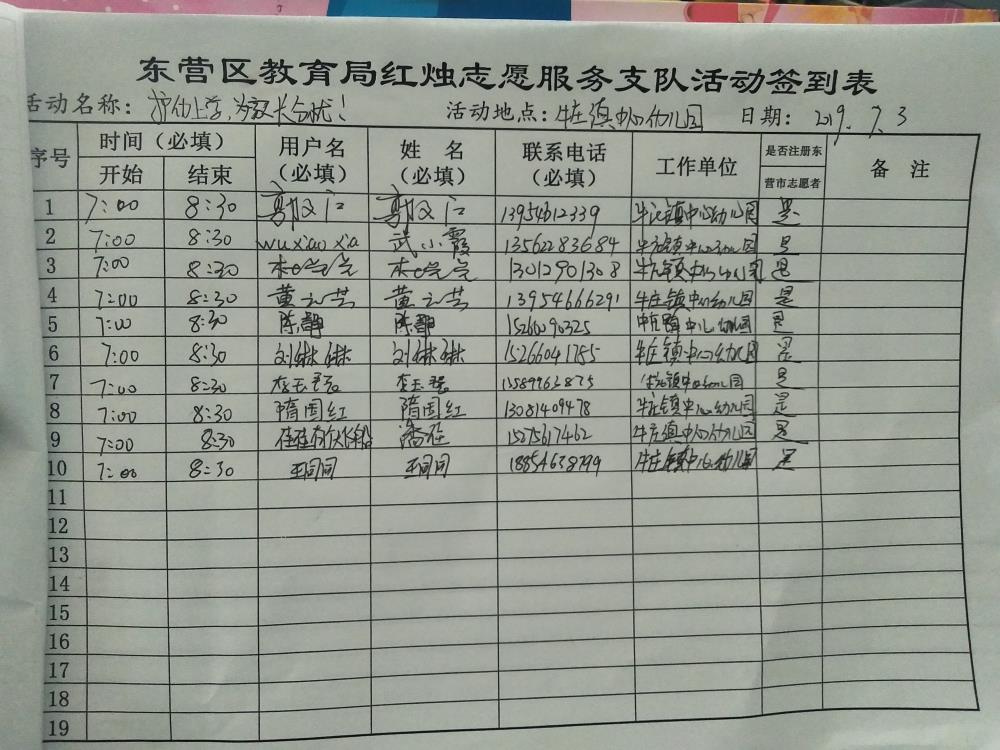 东营区教育局红烛志愿服务支队活动签到表
活动名称：护幼上学，为家长分忧！ 活动地点：牛庄镇中心幼儿园 日期：2019.7.3
序号 时间（必填） 用户名（必填） 姓名（必填） 联系电话（必填） 工作单位 是否注册东营市志愿者 备注
开始 结束
1 7:00 8:30 13954612339 牛庄镇中心幼儿园 是
2 7:00 8:30 wuxiaoxia 武小霞 13562283684 牛庄镇中心幼儿园 是
3 7:00 8:30 13012901308 牛庄镇中心幼儿园 是
4 7:00 8:30 黄云芸 黄云芸 13954666291 牛庄镇中心幼儿园 是
5 7:00 8:30 陈静 陈静 15266090325 牛庄镇中心幼儿园 是
6 7:00 8:30 刘琳琳 刘琳琳 15266041785 牛庄镇中心幼儿园 是
7 7:00 8:30 李玉 李玉 13589963875 牛庄镇中心幼儿园 是
8 7:00 8:30 隋国红 隋国红 13081409478 牛庄镇中心幼儿园 是
9 7:00 8:30 15275617462 牛庄镇中心幼儿园 是
10 7:00 8:30 王同同 王同同 牛庄镇中心幼儿园 是
11
12
13
14
15
16
17
18
19